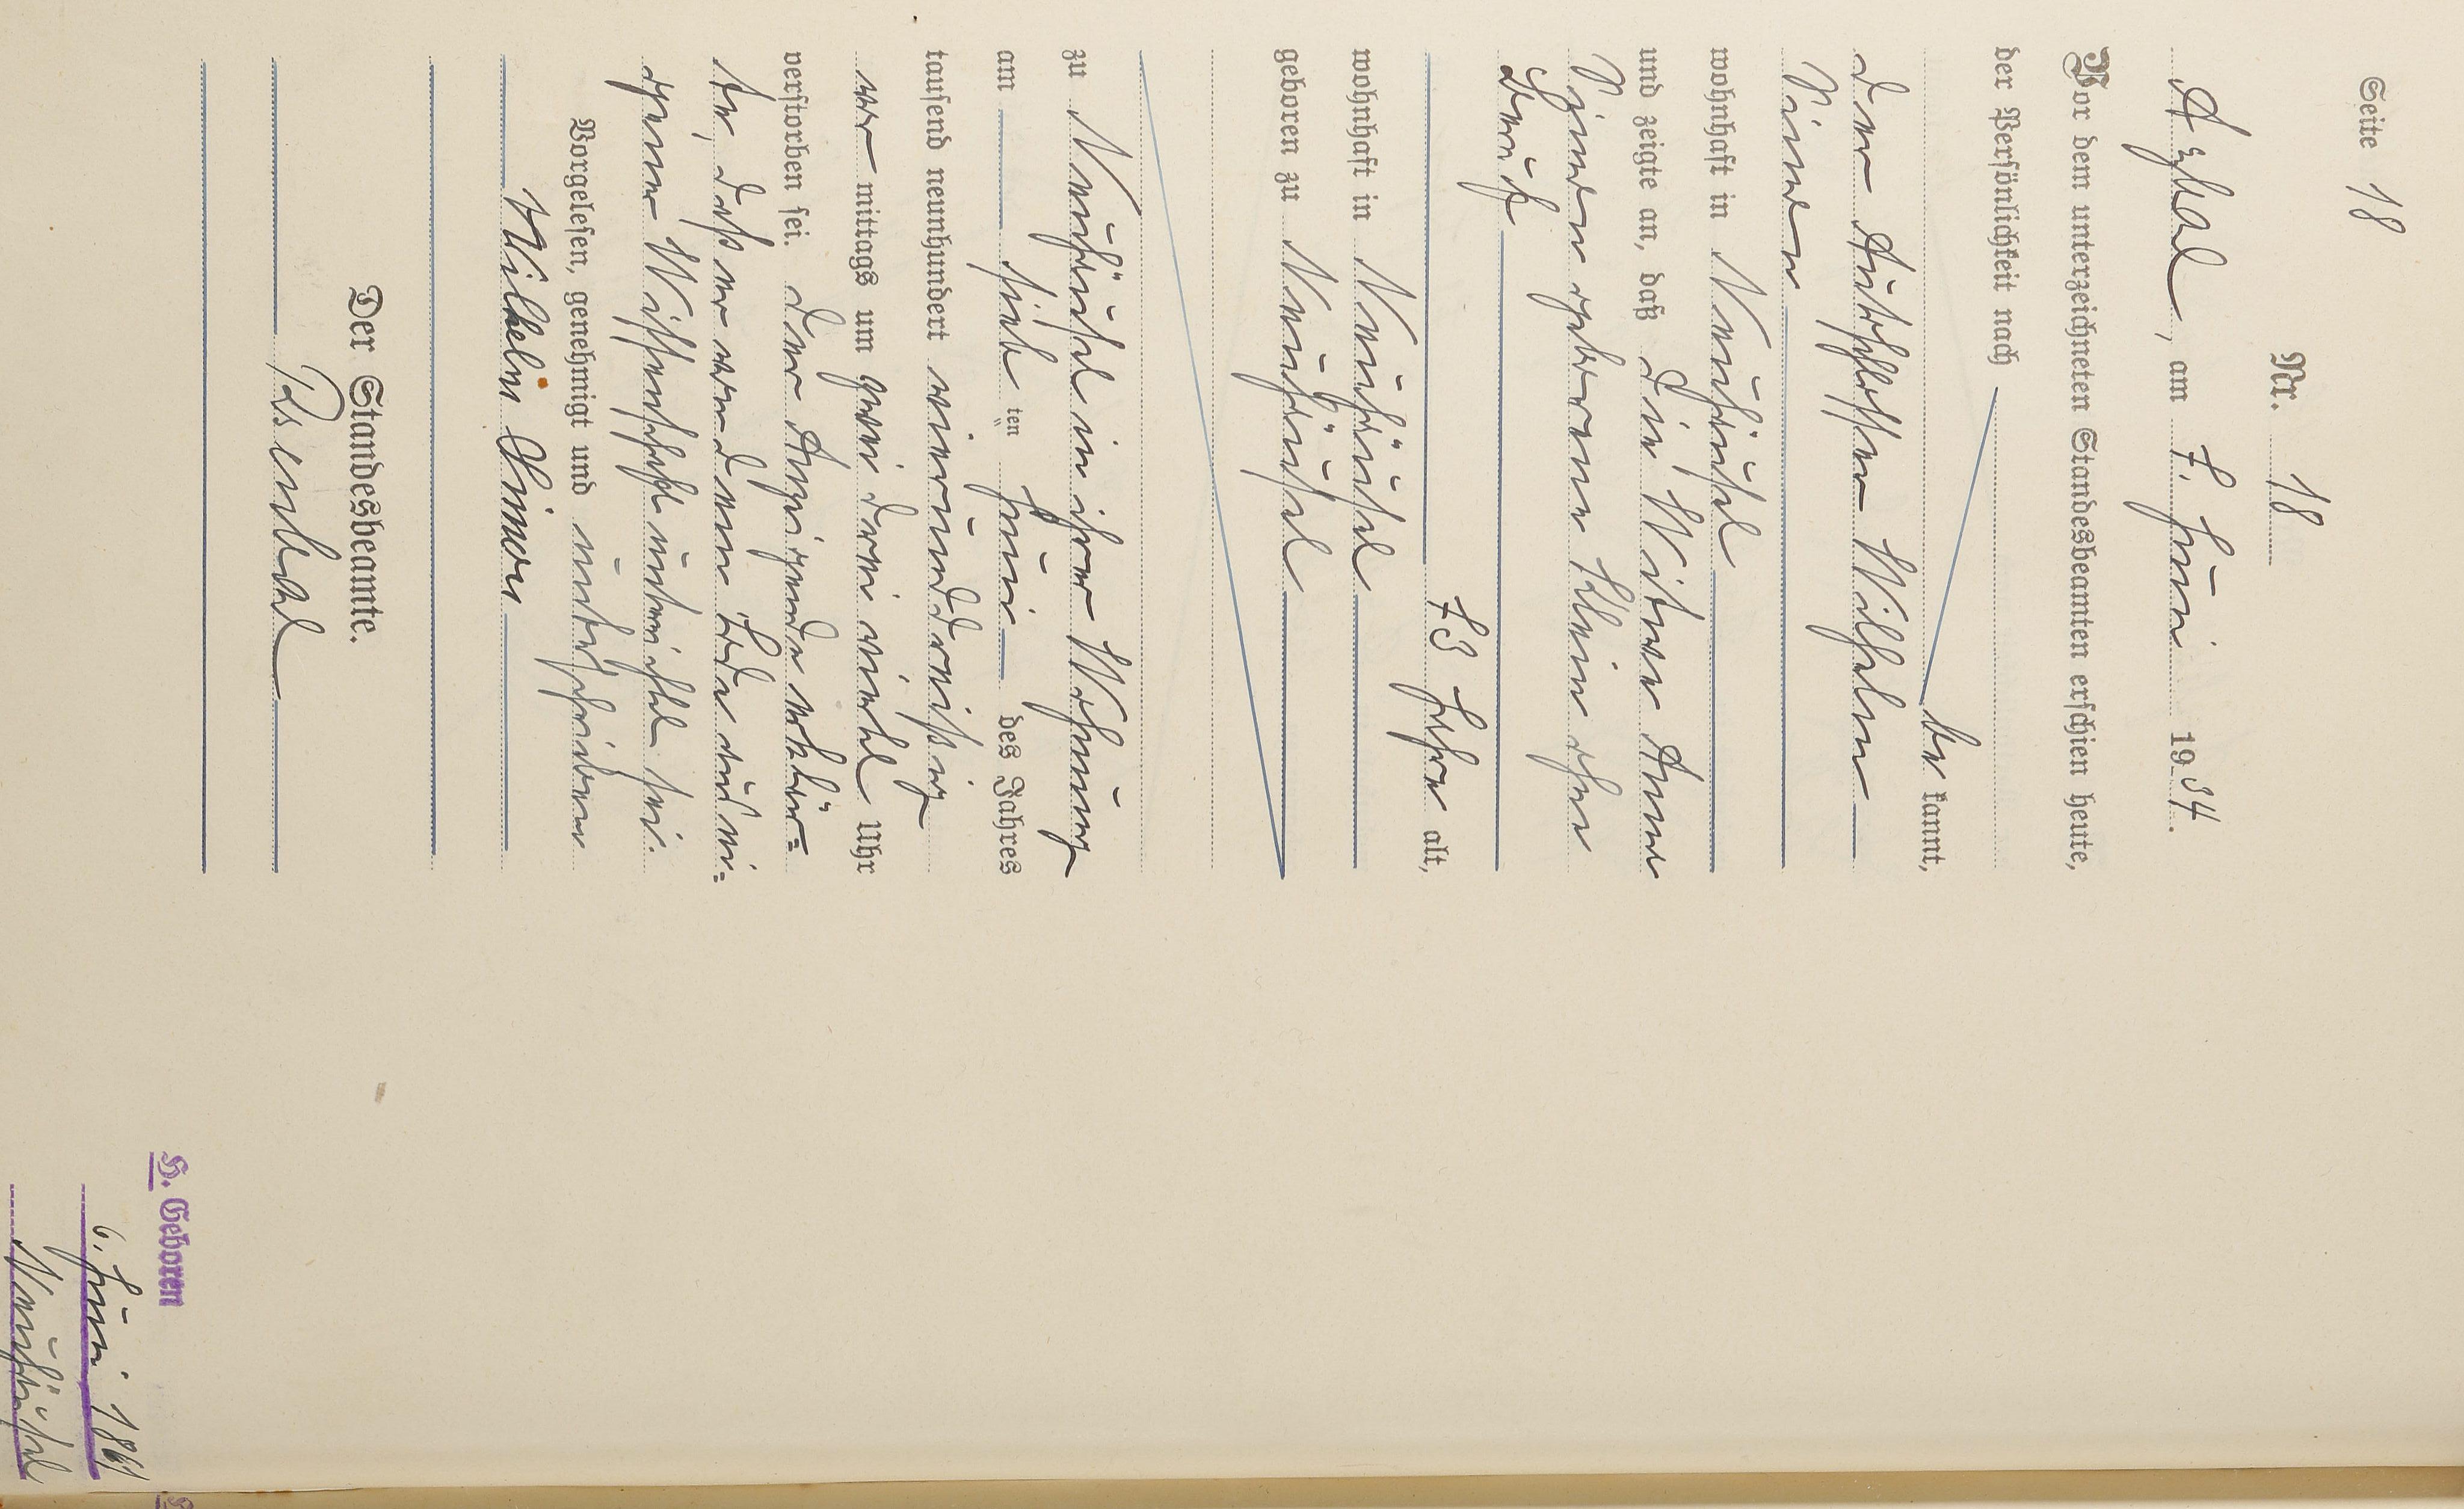 Seite 18
Nr. 18
Arzbach, am 7. Juni 1934.
Vor dem unterzeichneten Standesbeamten erschien heute,
der Persönlichkeit nach
be kannt,
der Autoschlosser Wilhelm
Simon
wohnhaft in Neuhäusel
und zeigte an, daß die Witwe Anna
Simon geborene Klein ohne
Beruf
73 Jahre alt,
wohnhaft in Neuhäusel
geboren zu Neuhäusel
zu Neuhäusel in ihrer Wohnung
am sieb ten Juni des Jahres
tausend neunhundert vierunddreißig
vor mittags um zwei drei viertel Uhr
verstorben sei. Der Anzeigende erklär=
te, daß er von dem Tode aus ei=
gener Wissenschaft unterrichtet sei.
Vorgelesen, genehmigt und unterschrieben
Wilhelm Simon
Der Standesbeamte.
H. Geboren
6. Juni 1861
Neuhäusel